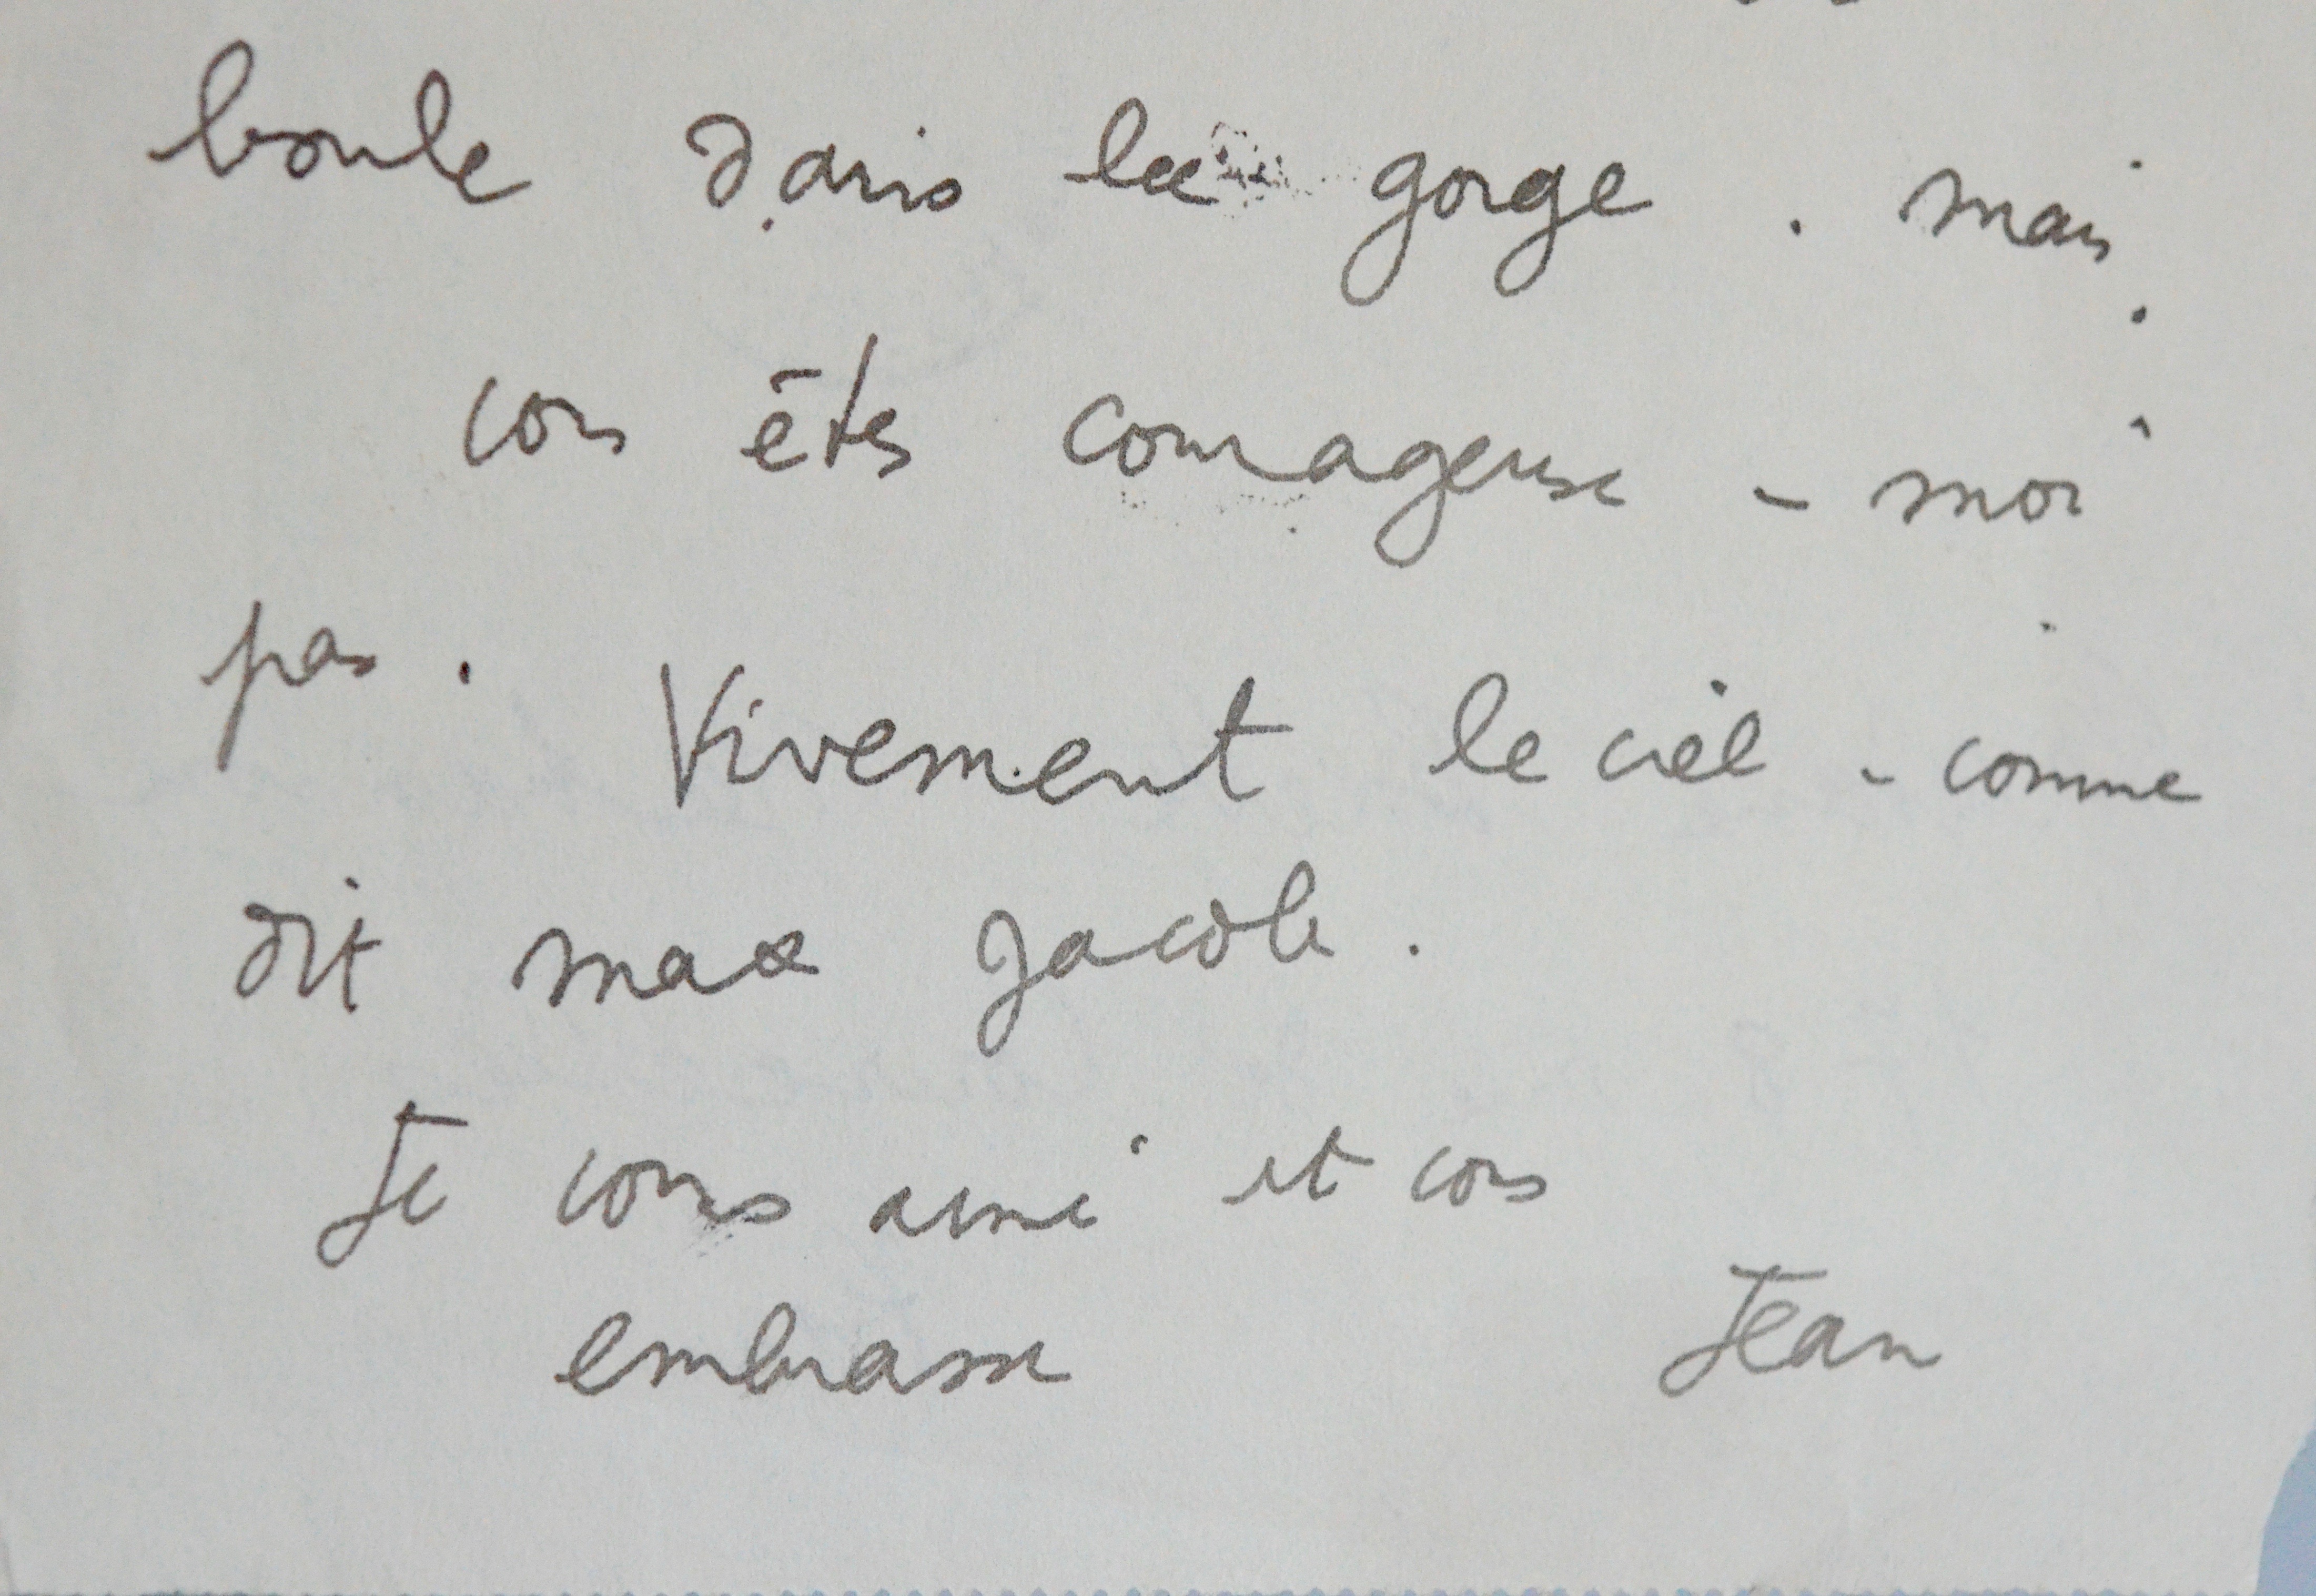 boule dans la gorge. mais
vous êtes courageuse - moi
pas. Vivement le ciel - comme
dit max Jacob.
Je vous aime et vous
embrasse
Jean